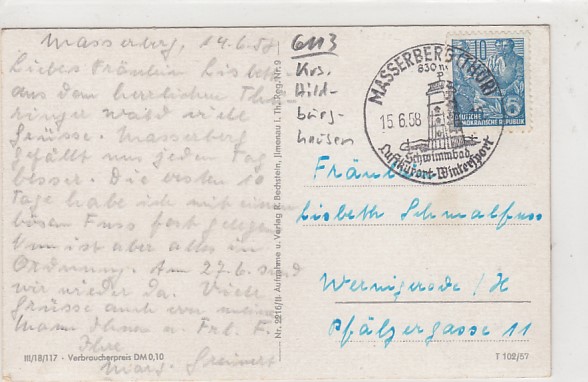 Masserberg, 14.6.58
Liebes Fräulein Lisbeth
aus dem herrlichen Thü-
ringer wald viele
Grüsse. Masserberg
gefällt uns jeden Tag
besser. Die ersten 10
Tage habe ich mit einem
bösen Fuss fest gelegen
Nun ist aber alles in
Ordnung. Am 27.6. sind
wir wieder da. Viele
Grüsse auch von meinem
Mann Ihnen u. Frl. F.
Ihre
Marg.
III/18/117 - Verbraucherpreis DM 0,10
Nr. 2216/II. Aufnahme u. Verlag R. Bechstein, Jlmenau i. Th. Reg. Nr. 9
6113
Krs.
Hild-
burg-
hausen
MASSERBERG (THÜR)
830 m
15.6.58
Schwimmbad
Luftkurort-Wintersport
10
DEUTSCHE
DEMOKRATISCHE REPUBLIK
Fräulein
Lisbeth Schmalfuss
Wernigerode / H
Pfälzergasse 11
T 102/57